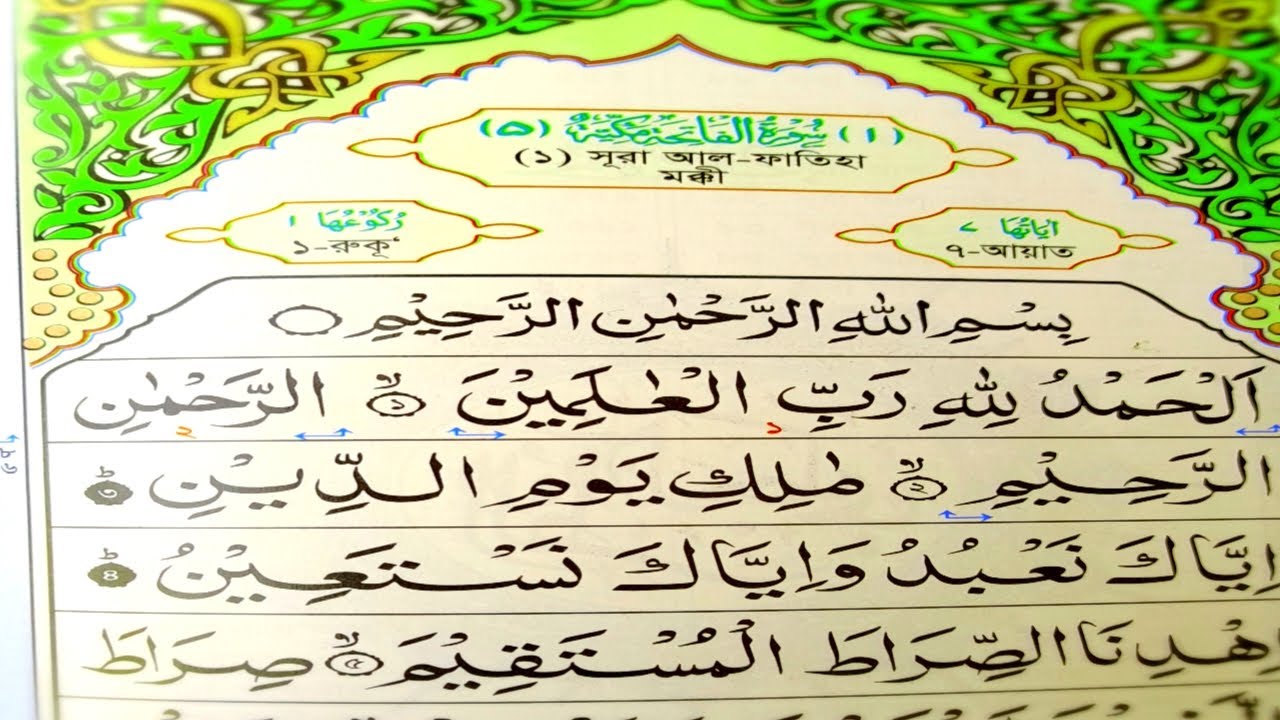 (۱) سُوْرَةُ الْفَاتِحَةِ مَكِّيَّةٌ (۵)
(১) সূরা আল-ফাতিহা
মক্কী
اٰيَاتُهَا ۷
৭-আয়াত
رُكُوْعُهَا ۱
১-রুকূ‘
بِسْمِ اللّٰهِ الرَّحْمٰنِ الرَّحِيْمِ
اَلْحَمْدُ لِلّٰهِ رَبِّ الْعٰلَمِيْنَ ۙ ১ الرَّحْمٰنِ
১ ২
الرَّحِيْمِ ۙ ২ مٰلِكِ يَوْمِ الدِّيْنِ ؕ ৩
اِيَّاكَ نَعْبُدُ وَاِيَّاكَ نَسْتَعِيْنُ ؕ ৪
اِهْدِنَا الصِّرَاطَ الْمُسْتَقِيْمَ ۙ ৫ صِرَاطَ